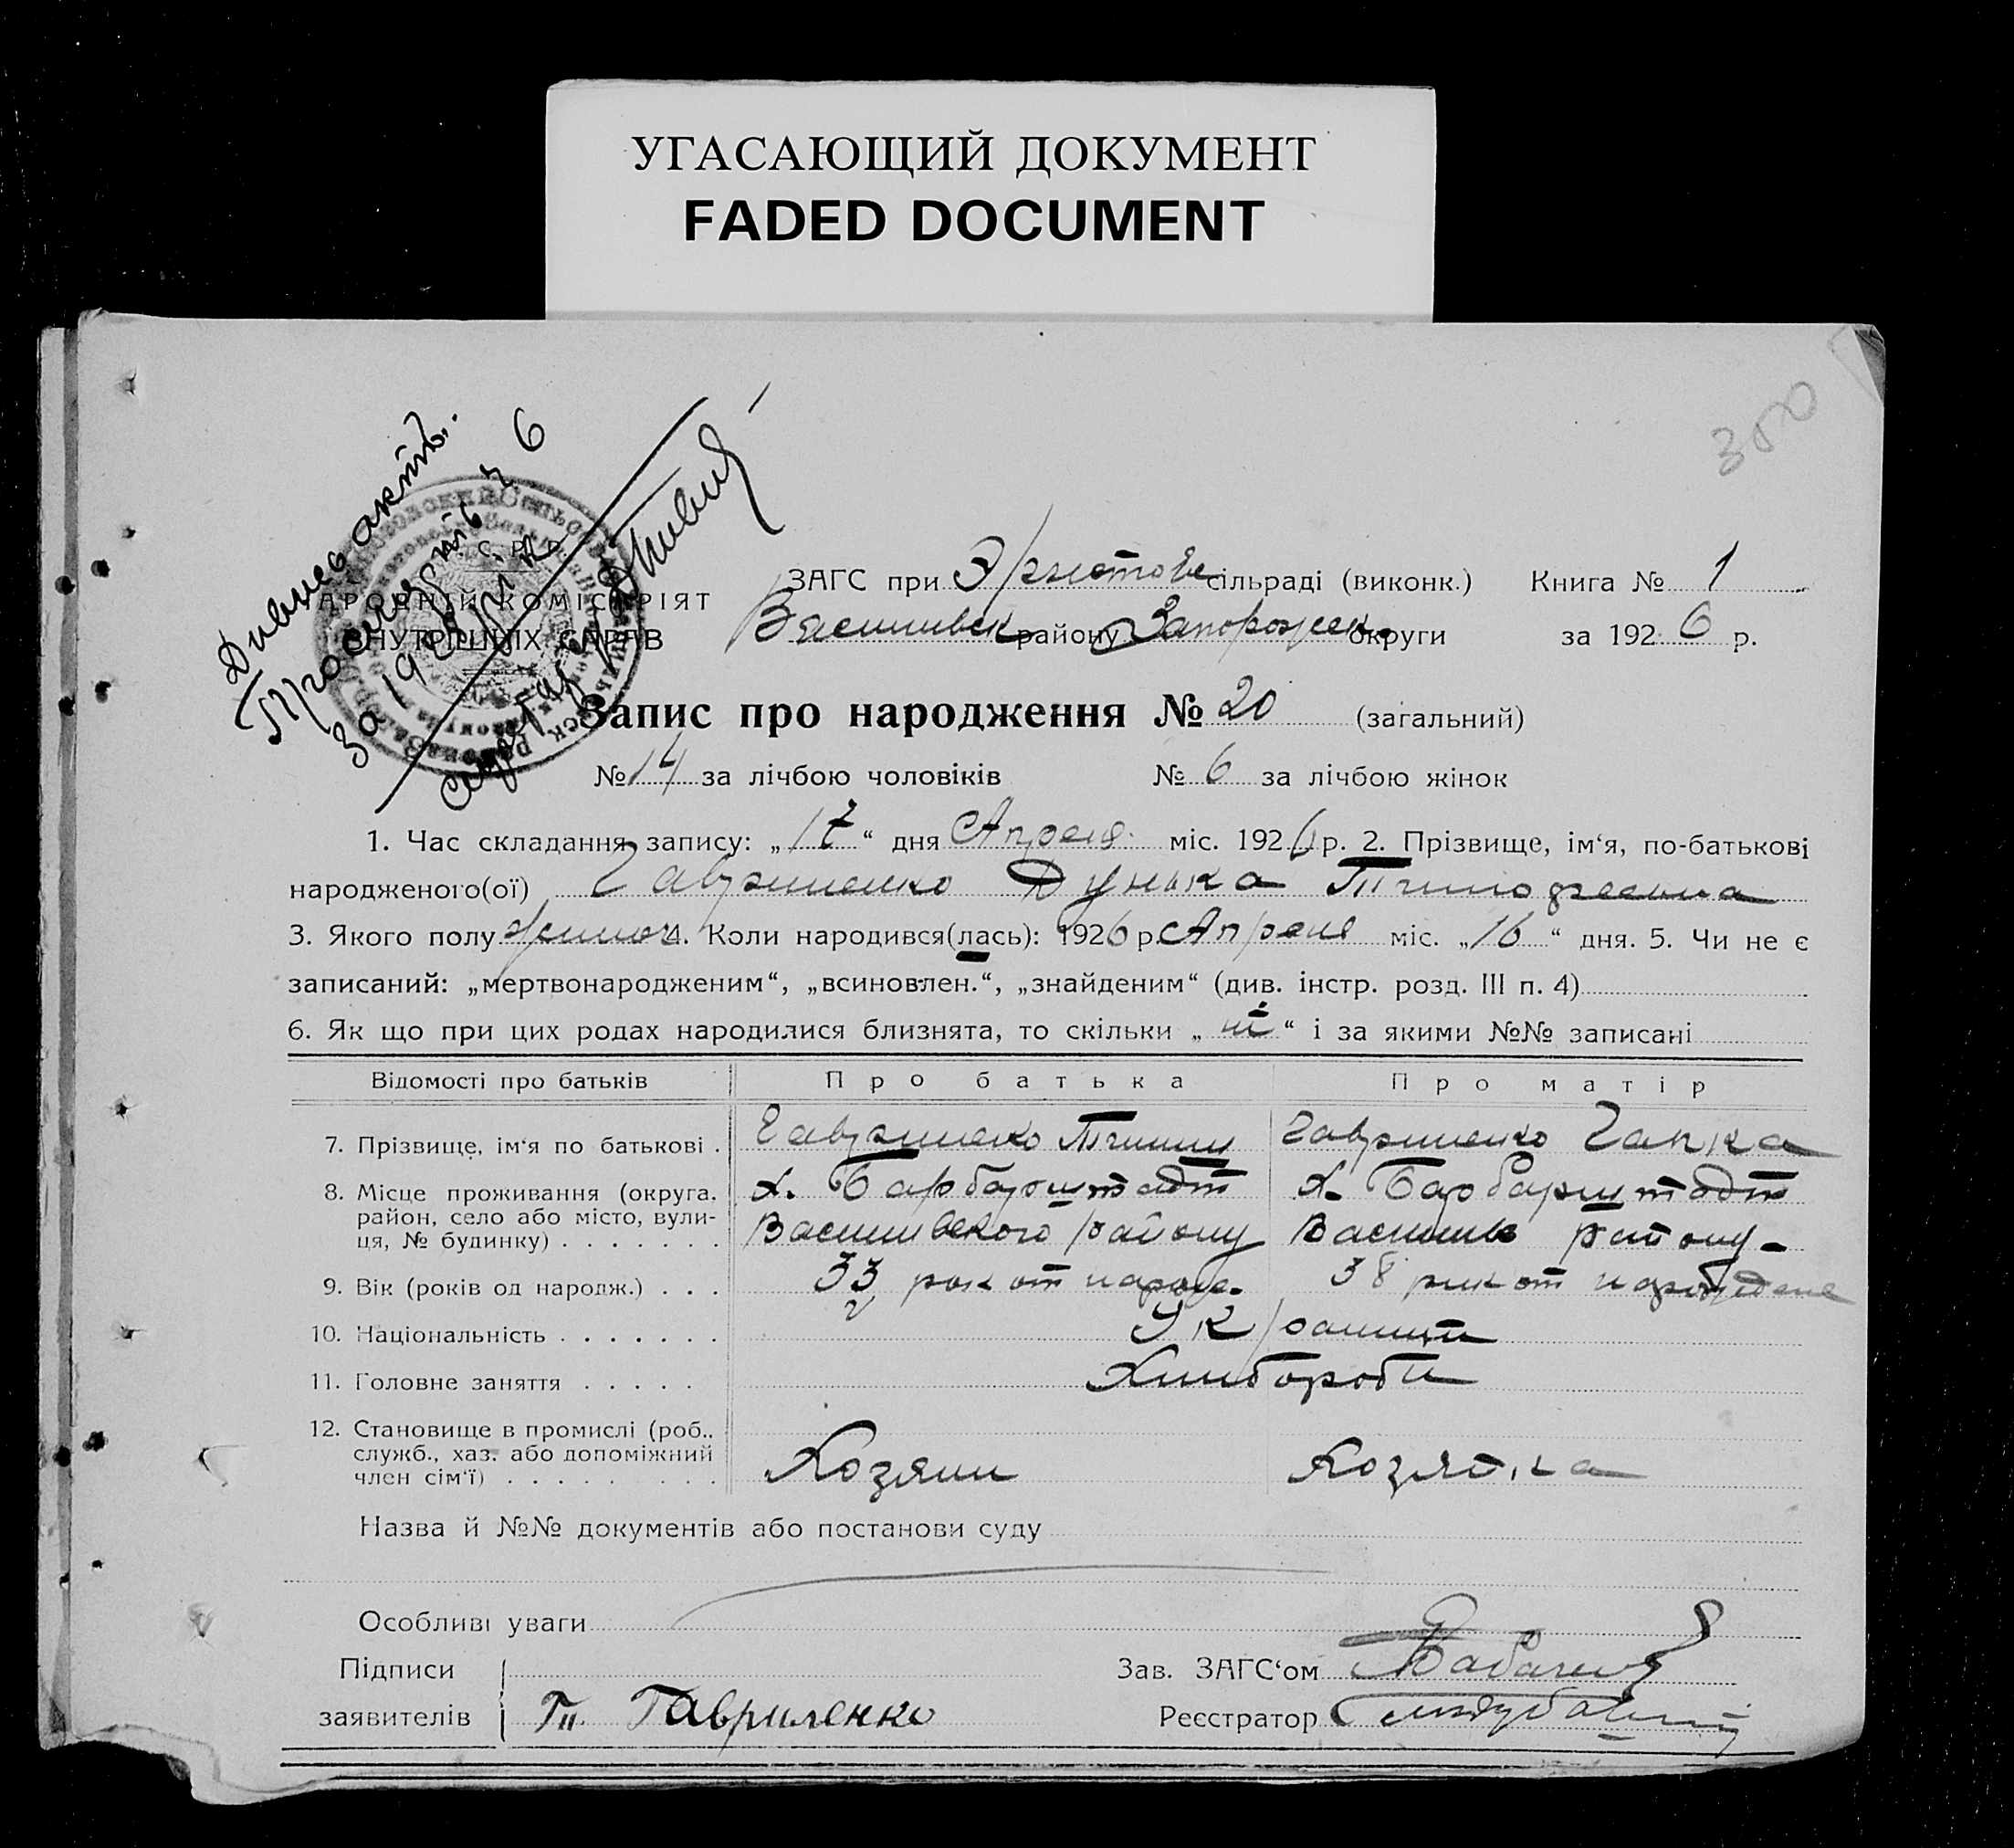 УГАСАЮЩИЙ ДОКУМЕНТ
FADED DOCUMENT
350
6
НАРОДНІЙ КОМІСАРІЯТ
ВНУТРІШНІХ СПРАВ
ЗАГС при сільраді (виконк.) Книга № 1
Василивск району Запорожск. округи за 1926 р.
Запис про народження № 20 (загальний)
№ 14 за лічбою чоловіків № 6 за лічбою жінок
1. Час складання запису: „17“ дня Апреля міс. 1926 р. 2. Прізвище, ім‘я, по-батькові
народженого(ої) Гавриленко Дунька Тимофеевна
3. Якого полу жіноч 4. Коли народився(лась): 1926 р. Апреля міс. „16“ дня. 5. Чи не є
записаний: „мертвонародженим“, „всиновлен.“, „знайденим“ (див. інстр. розд. III п. 4)
6. Як що при цих родах народилися близнята, то скільки „ні“ і за якими №№ записані
Відомості про батьків Про батька Про матір
7. Прізвище, ім‘я по батькові . Гавриленко Тимиш Гавриленко Гапка
8. Місце проживання (округа, район, село або місто, вулиця, № будинку) . . . . . . . х. Барбарштадт х. Барбарштадт
Василивского району Василив району
9. Вік (років од народж.) . . . 33 рок от народ. 38 рик от народжене
10. Національність . . . . . . . Украинци
11. Головне заняття . . . . . Хлибороби
12. Становище в промислі (роб., служб., хаз. або допоміжний член сім‘ї) . . . . . . . . . Хозяин Хозяйка
Назва й №№ документів або постанови суду
Особливі уваги
Підписи Зав. ЗАГС‘ом
заявителів Ти. Гавриленко Реєстратор